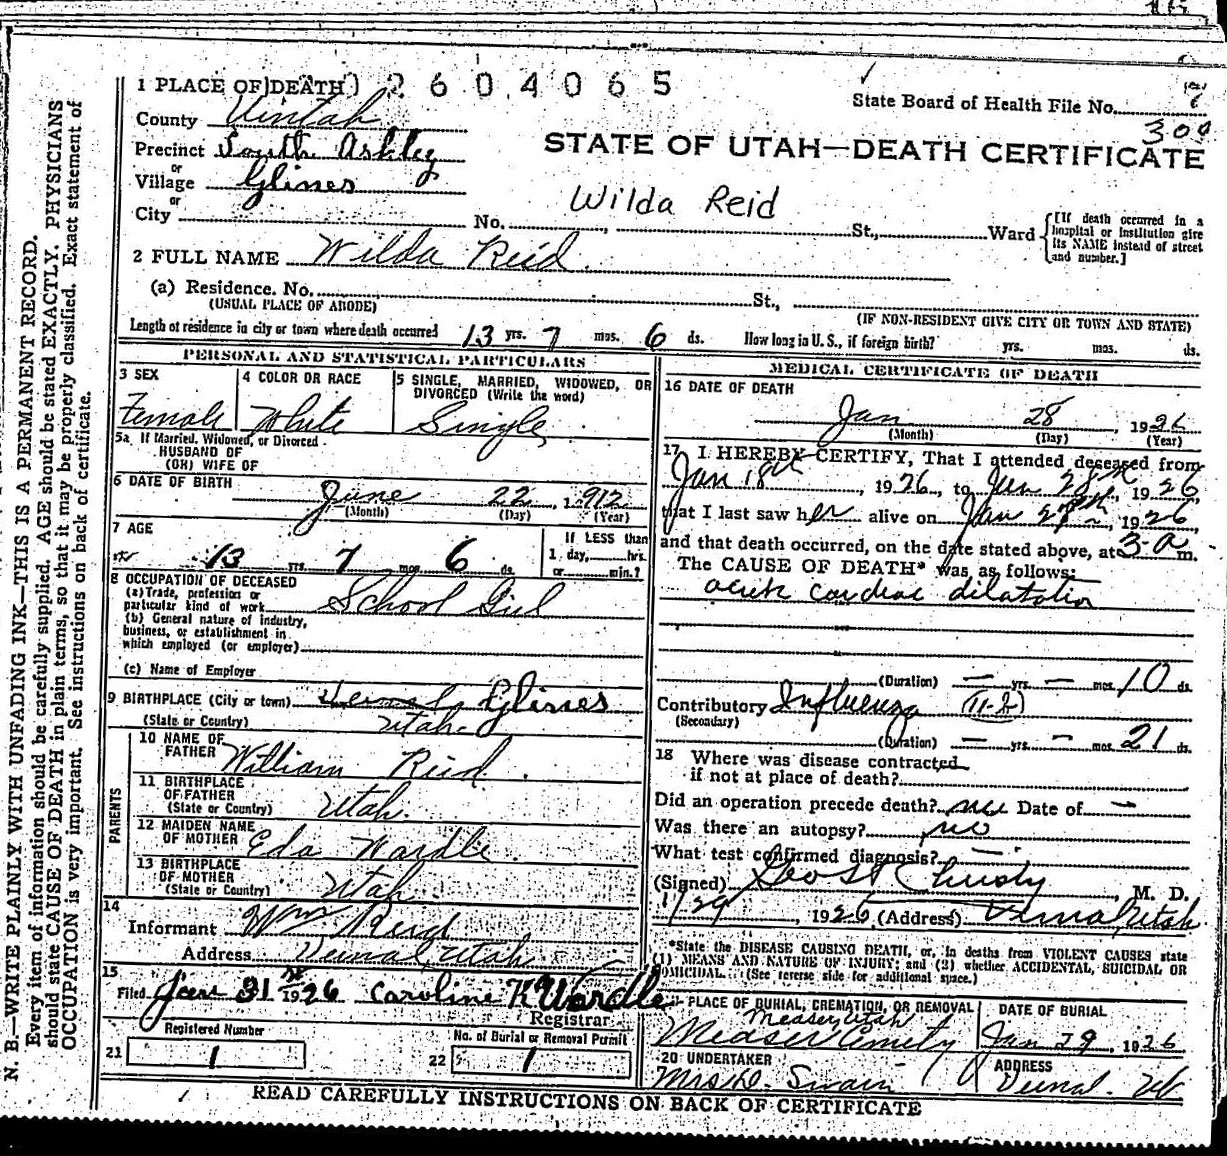 1 PLACE OF DEATH 2604065
State Board of Health File No. 7
County Uintah
309
Precinct South Ashley
STATE OF UTAH—DEATH CERTIFICATE
or
Village Glines
or
Wilda Reid
City No. , St., Ward
[If death occurred in a
hospital or institution give
its NAME instead of street
and number.]
2 FULL NAME Wilda Reid.
(a) Residence. No. St.,
(USUAL PLACE OF ABODE) (IF NON-RESIDENT GIVE CITY OR TOWN AND STATE)
Length of residence in city or town where death occurred 13 yrs. 7 mos. 6 ds. How long in U. S., if foreign birth? yrs. mos. ds.
PERSONAL AND STATISTICAL PARTICULARS
3 SEX
Female
4 COLOR OR RACE
White
5 SINGLE, MARRIED, WIDOWED, OR
DIVORCED (Write the word)
Single
5a If Married, Widowed, or Divorced
HUSBAND OF
(OR) WIFE OF
6 DATE OF BIRTH June 22, 1912
(Month) (Day) (Year)
7 AGE
13 yrs. 7 mos. 6 ds.
If LESS than
1 day, hrs.
or min.?
8 OCCUPATION OF DECEASED
(a) Trade, profession or
particular kind of work School Girl
(b) General nature of industry,
business, or establishment in
which employed (or employer)
(c) Name of Employer
9 BIRTHPLACE (City or town) Vernal Glines
(State or Country) Utah.
PARENTS
10 NAME OF
FATHER William Reid.
11 BIRTHPLACE
OF FATHER
(State or Country) Utah.
12 MAIDEN NAME
OF MOTHER Eda Wardle.
13 BIRTHPLACE
OF MOTHER
(State or Country) Utah
14
Informant Wm Reid
Address Vernal, Utah.
15
Filed Jan 31st 1926 Caroline K Wardle
Registrar
Registered Number
21 1
No. of Burial or Removal Permit
22 1
MEDICAL CERTIFICATE OF DEATH
16 DATE OF DEATH
Jan 28, 1926
(Month) (Day) (Year)
17 I HEREBY CERTIFY, That I attended deceased from
Jan 18th, 1926, to Jan 28th, 1926,
that I last saw her alive on Jan 27th, 1926,
and that death occurred, on the date stated above, at 3-a m.
The CAUSE OF DEATH* was as follows:
acute cardiac dilatation
(Duration) — yrs. — mos. 10 ds.
Contributory Influenza (11-b)
(Secondary)
(Duration) — yrs. — mos. 21 ds.
18 Where was disease contracted
if not at place of death?
Did an operation precede death? no Date of —
Was there an autopsy? no
What test confirmed diagnosis? —
(Signed) Geo H Christy, M. D.
1/29, 1926 (Address) Vernal, Utah
*State the DISEASE CAUSING DEATH, or, in deaths from VIOLENT CAUSES state
(1) MEANS AND NATURE OF INJURY; and (2) whether ACCIDENTAL, SUICIDAL OR
HOMICIDAL. (See reverse side for additional space.)
PLACE OF BURIAL, CREMATION, OR REMOVAL
Measer, Utah
Measer Cemety
DATE OF BURIAL
Jan 29, 1926
20 UNDERTAKER
Mrs D. Swain
ADDRESS
Vernal. Ut
READ CAREFULLY INSTRUCTIONS ON BACK OF CERTIFICATE
N. B.—WRITE PLAINLY WITH UNFADING INK—THIS IS A PERMANENT RECORD.
Every item of information should be carefully supplied. AGE should be stated EXACTLY. PHYSICIANS
should state CAUSE OF DEATH in plain terms, so that it may be properly classified. Exact statement of
OCCUPATION is very important. See instructions on back of certificate.